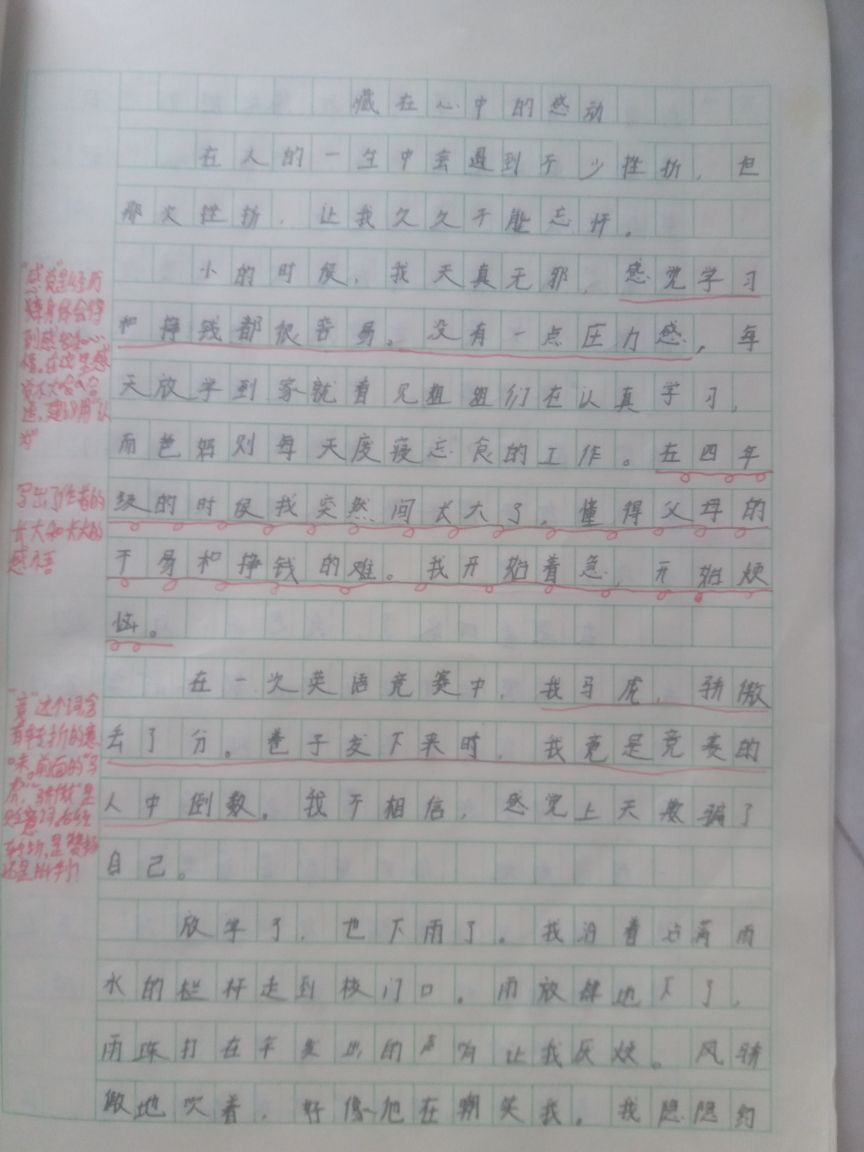 藏在心中的感动
在人的一生中会遇到不少挫折，但
那次挫折，让我久久不能忘怀。
小的时候，我天真无邪，感觉学习
和挣钱都很容易。没有一点压力感，每
天放学到家就看见姐姐们在认真学习，
而爸妈则每天废寝忘食的工作。在四年
级的时候我突然间长大了，懂得父母的
不易和挣钱的难。我开始着急，开始烦
恼。
在一次英语竞赛中，我马虎，骄傲
丢了分。卷子发下来时，我竟是竞赛的
人中倒数。我不相信，感觉上天欺骗了
自己。
放学了，也下雨了。我沿着沾满雨
水的栏杆走到校门口。雨放肆地下了，
雨珠打在车 的声响让我厌烦。风骄
傲地吹着，好像他在嘲笑我。我隐隐约
"感觉"是经历
得到感 和心
得。在这里感
觉不太合
适，建议用"认
为"
写出了作者的
长大和长大的
感悟
"竟"这个词含
有转折的意
味。前面的"马
虎""骄傲"是
贬义词，后经
转折，是赞扬
还是批判？